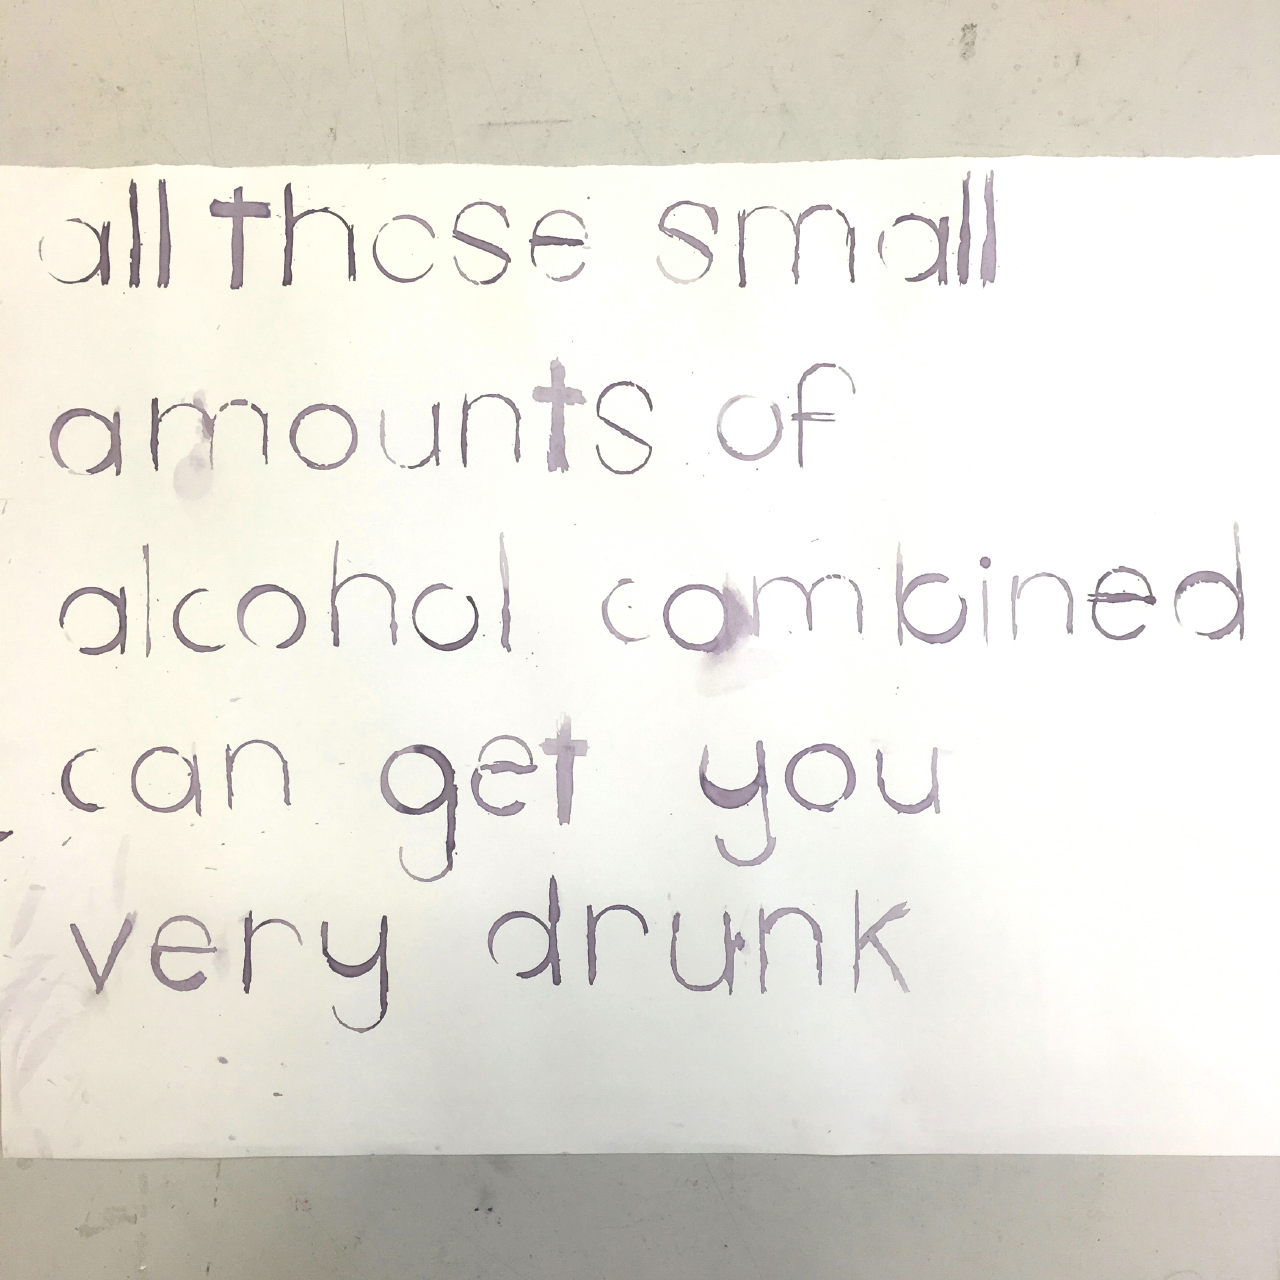 all those small
amounts of
alcohol combined
can get you
very drunk